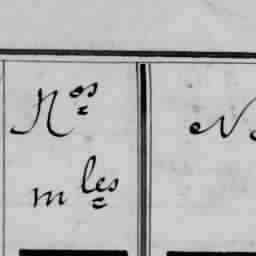 Nos
mles